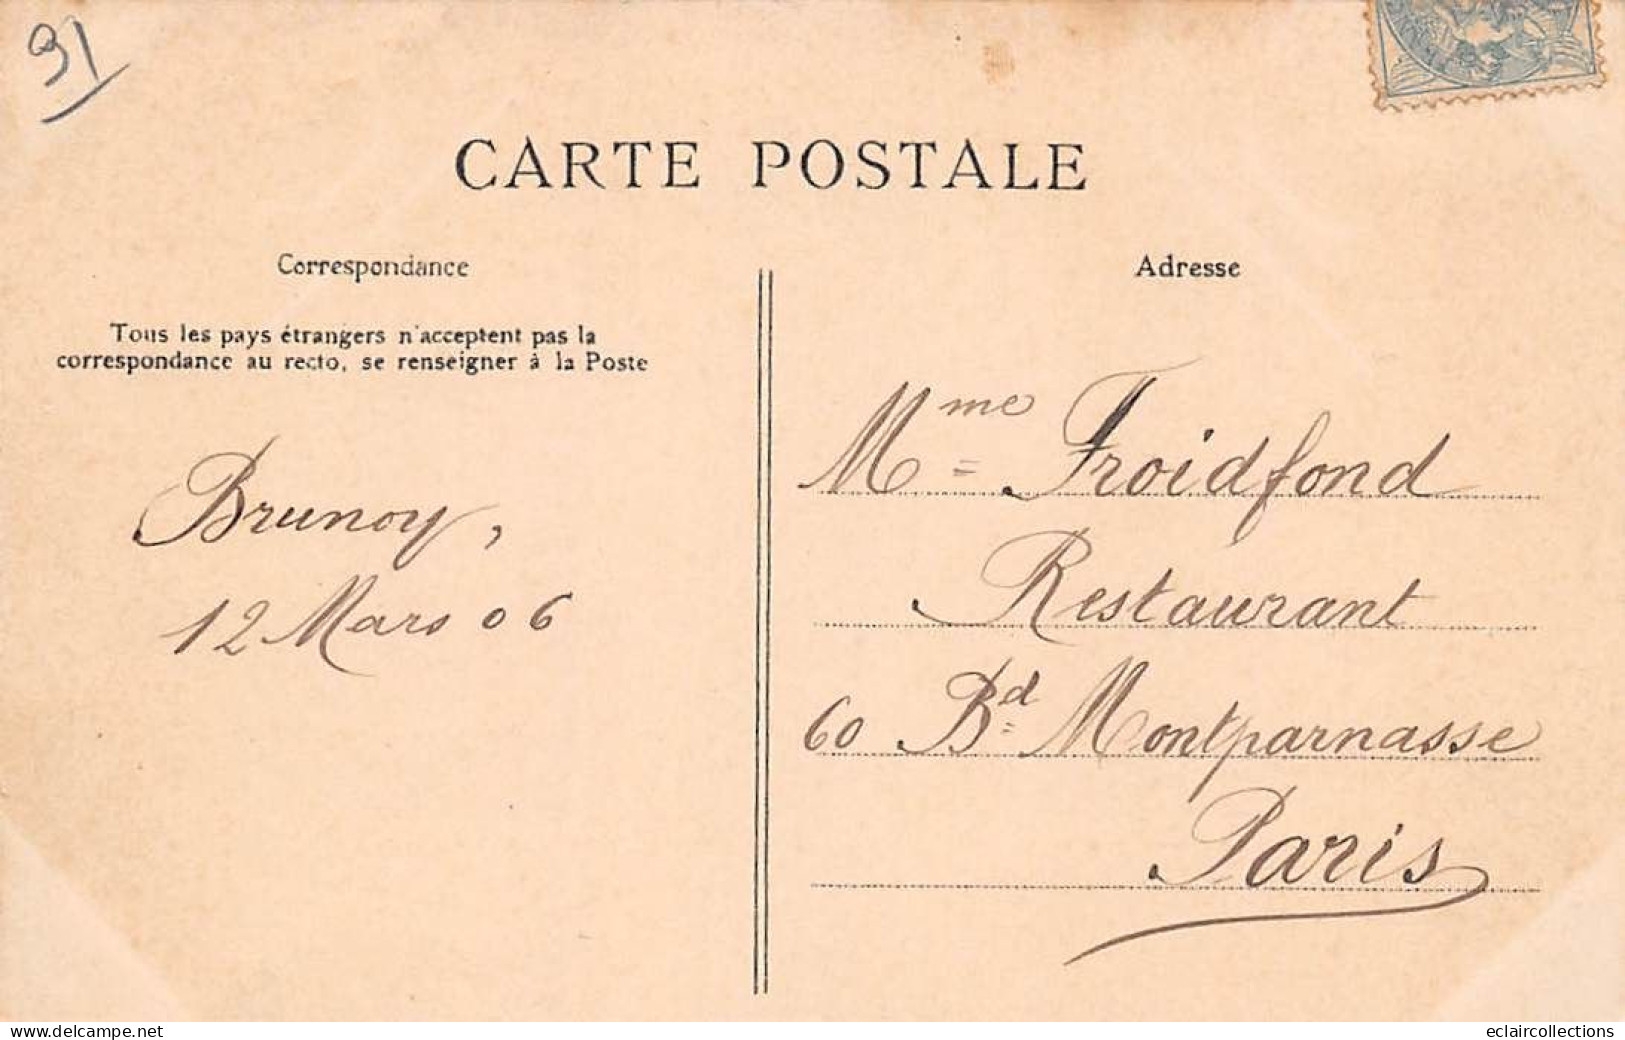 91
CARTE POSTALE
Correspondance
Tous les pays étrangers n'acceptent pas la
correspondance au recto, se renseigner à la Poste
Brunoy,
12 Mars 06
Adresse
Mme Froidfond
Restaurant
60 Bd Montparnasse
Paris
www.delcampe.net
eclaircollections